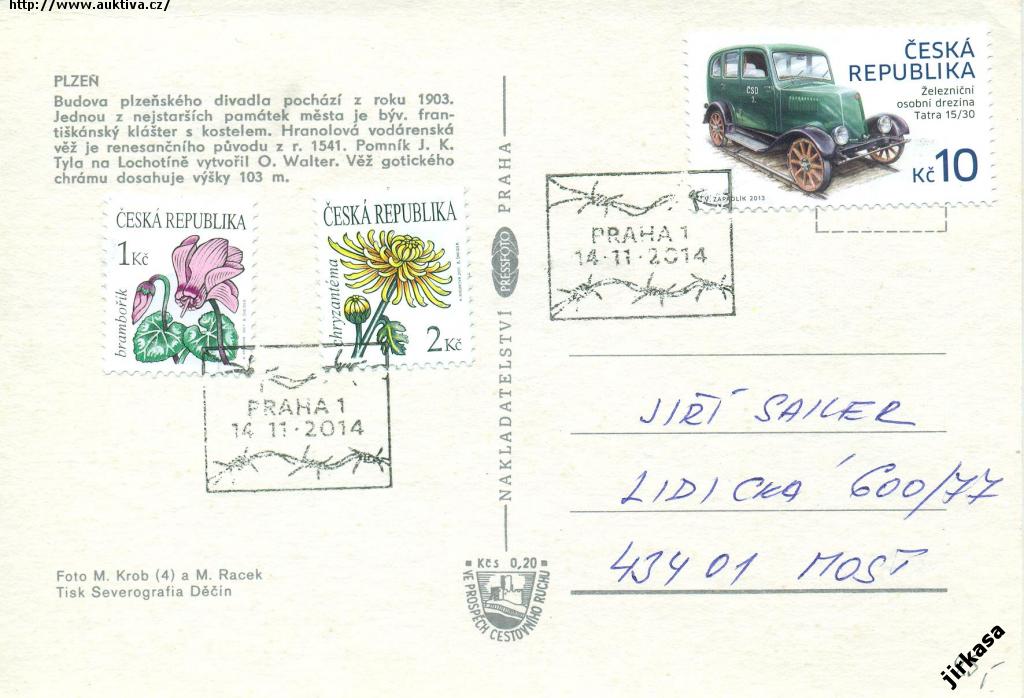 http://www.auktiva.cz/
PLZEŇ
Budova plzeňského divadla pochází z roku 1903.
Jednou z nejstarších památek města je býv. fran-
tiškánský klášter s kostelem. Hranolová vodárenská
věž je renesančního původu z r. 1541. Pomník J. K.
Tyla na Lochotíně vytvořil O. Walter. Věž gotického
chrámu dosahuje výšky 103 m.
ČESKÁ REPUBLIKA
1 Kč
brambořík
ČESKÁ REPUBLIKA
chryzantéma
2 Kč
PRAHA 1
14·11·2014
Foto M. Krob (4) a M. Racek
Tisk Severografia Děčín
NAKLADATELSTVÍ PRESSFOTO PRAHA
Kčs 0,20
VE PROSPĚCH CESTOVNÍHO RUCHU
ČESKÁ
REPUBLIKA
Železniční
osobní drezína
Tatra 15/30
ČSD
Kč 10
PRAHA 1
14·11·2014
JIŘÍ SAILER
LIDICKÁ 600/77
434 01 MOST
jirkasa